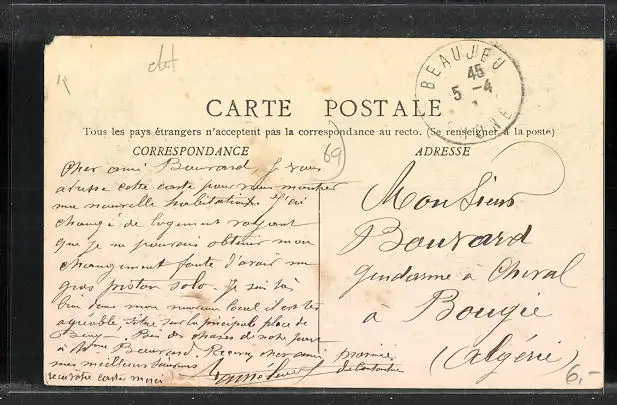 clot
BEAUJEU
45
5 -4
RHONE
CARTE POSTALE
Tous les pays étrangers n'acceptent pas la correspondance au recto. (Se renseigner à la poste)
CORRESPONDANCE
ADRESSE
69
Cher ami Bouvard, Je vous
adresse cette carte pour vous montrer
ma nouvelle habitation. J'ai
changé de logement voyant
que je ne pouvais obtenir mon
changement faute d'avoir un
gros piston solo. Je suis très
bien dans mon nouveau local il est très
agréable, situé sur la principale place de
Bien des choses de notre part
à Mme Bouvard. Recevez cher ami
mes meilleurs
reçu votre carte merci
Monsieur
Bouvard
Gendarme à Cheval
à Bougie
(Algérie)
6,-